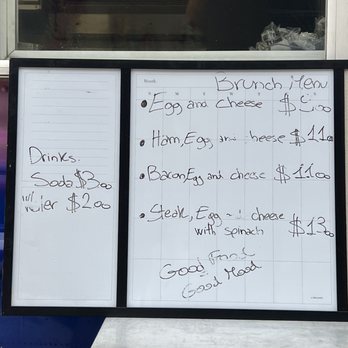 Drinks.
Soda $3.00
$2.00
Brunch Menu
• Egg and cheese
• Ham, Egg, and cheese $11.00
• Bacon, Egg and cheese $11.00
• Steak, Egg and cheese $13.00
with spinach
Good Food
Good Mood